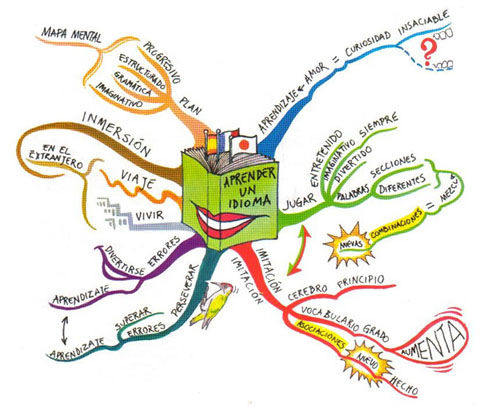 APRENDER
UN
IDIOMA
MAPA MENTAL
PROGRESIVO
ESTRUCTURADO
GRAMÁTICA
IMAGINATIVO
PLAN
INMERSIÓN
EN EL
EXTRANJERO
VIAJE
VIVIR
DIVERTIRSE ERRORES
APRENDIZAJE
PERSEVERAR
SUPERAR
ERRORES
APRENDIZAJE
APRENDIZAJE AMOR = CURIOSIDAD INSACIABLE
?
JUGAR
ENTRETENIDO
IMAGINATIVO SIEMPRE
DIVERTIDO
PALABRAS
SECCIONES
DIFERENTES
NUEVAS
COMBINACIONES = MEZCLA
IMITACIÓN
IMITACIÓN
CEREBRO PRINCIPIO
VOCABULARIO GRADO
AUMENTA
ASOCIACIONES
NUEVO
HECHO